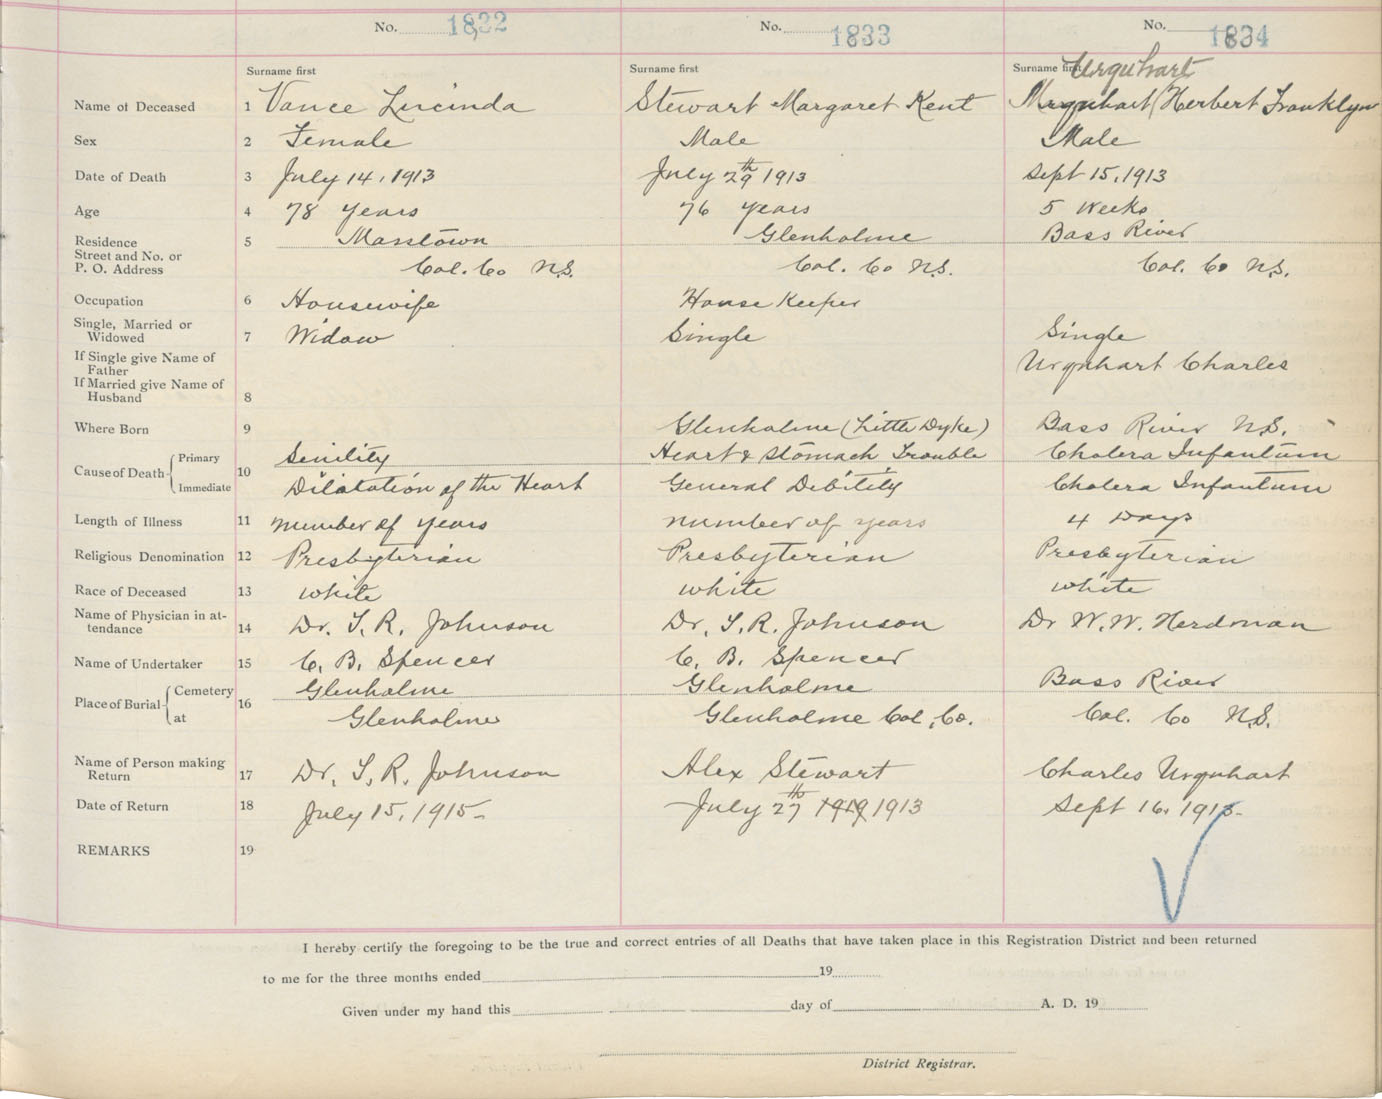 No. 1832 No. 1833 No. 1834
Surname first Surname first Surname first Urquhart
Name of Deceased 1 Vance Lucinda Stewart Margaret Kent Urquhart (Herbert Franklyn
Sex 2 Female Male Male
Date of Death 3 July 14, 1913 July 29th 1913 Sept 15, 1913
Age 4 78 Years 76 Years 5 Weeks
Residence 5 Masstown Glenholme Bass River
Street and No. or
P. O. Address Col. Co N.S. Col. Co N.S. Col. Co N.S.
Occupation 6 Housewife House Keeper
Single, Married or
Widowed 7 Widow Single Single
If Single give Name of
Father Urquhart Charles
If Married give Name of
Husband 8
Where Born 9 Glenholme (Little Dyke) Bass River N.S.
Cause of Death Primary 10 Senility Heart & Stomach Trouble Cholera Infantum
Immediate Dilatation of the Heart General Debility Cholera Infantum
Length of Illness 11 number of years number of years 4 Days
Religious Denomination 12 Presbyterian Presbyterian Presbyterian
Race of Deceased 13 white white white
Name of Physician in at-
tendance 14 Dr. T. R. Johnson Dr. T. R. Johnson Dr W. W. Herdman
Name of Undertaker 15 C. B. Spencer C. B. Spencer
Place of Burial Cemetery 16 Glenholme Glenholme Bass River
at Glenholme Glenholme Col. Co. Col. Co N.S.
Name of Person making
Return 17 Dr. T. R. Johnson Alex Stewart Charles Urquhart
Date of Return 18 July 15, 1915 July 27th 1919 1913 Sept 16, 1913
REMARKS 19
I hereby certify the foregoing to be the true and correct entries of all Deaths that have taken place in this Registration District and been returned
to me for the three months ended 19
Given under my hand this day of A. D. 19
District Registrar.